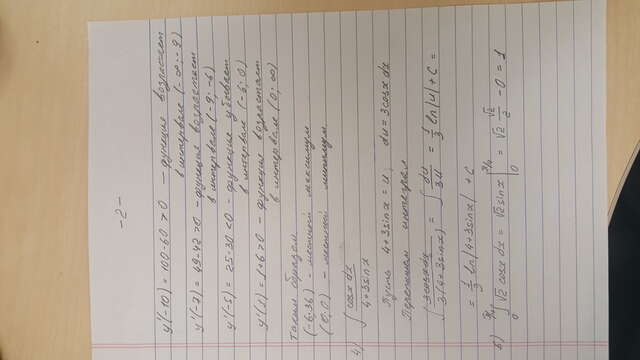 -2-
y'(-10) = 100-60 > 0 - функция возрастает
в интервале (-∞; -9)
y'(-7) = 49-42 > 0 - функция возрастает
в интервале (-9; -6)
y'(-5) = 25-30 < 0 - функция убывает
в интервале (-6; 0)
y'(1) = 1+6 > 0 - функция возрастает
в интервале (0; ∞)
Таким образом
(-6; 36) - местный максимум
(0; 0) - местный минимум.
4) ∫ cosx dx / 4+3sinx
Пусть 4+3sinx = u, du = 3cosx dx
Перепишем интеграл
∫ 3cosx dx / 3(4+3sinx) = ∫ du / 3u = 1/3 ln|u| + C =
= 1/3 ln|4+3sinx| + C
5) ∫ √2 cosx dx = √2 sinx | = √2 √2/2 - 0 = 1